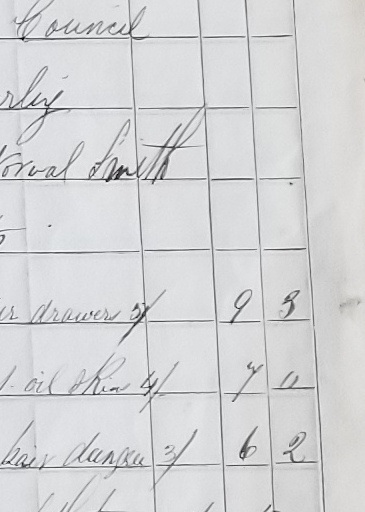 Council
rley
Norval Smith
ir drawers 5/ 9 3
oil skin 4/ 7 11
pair dungea 3/ 6 2